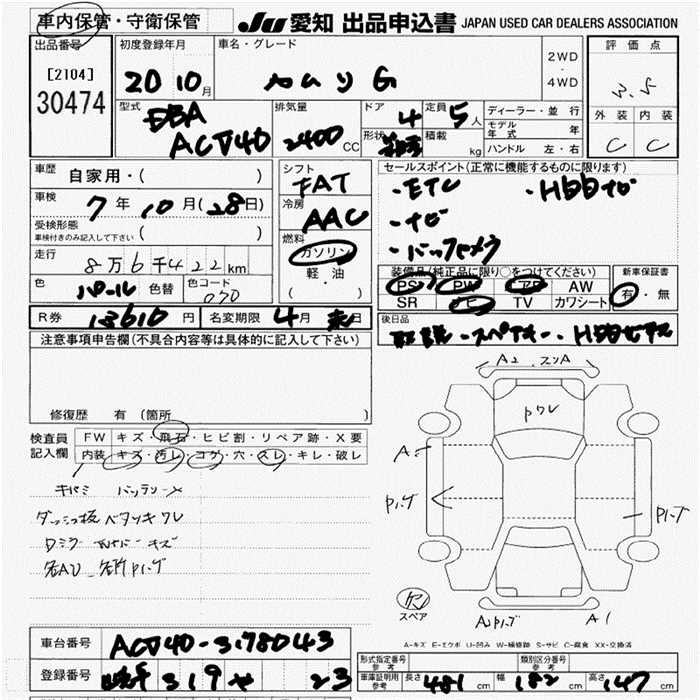 車内保管・守衛保管
JU 愛知 出品申込書 JAPAN USED CAR DEALERS ASSOCIATION
出品番号
[2104]
30474
初度登録年月
20 10月
車名・グレード
カムリ G
2WD
・
4WD
評価点
3.5
外装 内装
C C
型式
DBA
ACV40
排気量
2400 CC
ドア 4
形状
定員 5人
積載 kg
ディーラー・並行
モデル年式 年
ハンドル 左・右
車歴
自家用・( )
車検
7年10月(28日)
受検形態
車検付きのみ記入して下さい ( )
走行
8万6千422km
色 パール 色替
色コード 070
R券 13610円 名変期限 4月末日
シフト
FAT
冷房
AAC
燃料
ガソリン
軽・油
( ・ )
セールスポイント(正常に機能するものに限ります)
・ETC ・HDDナビ
・ナビ
・バックカメラ
装備品(純正品に限り○をつけてください)
PS PW AB AW
SR ナビ TV カワシート
新車保証書
有・無
後日品
取説・スペアキー・HDDビデオ
注意事項申告欄(不具合内容等は具体的に記入して下さい)
修復歴 有(箇所 )
検査員
記入欄
FW キズ・飛石・ヒビ割・リペア跡・X要
内装 キズ・汚レ・コゲ・穴・スレ・キレ・破レ
キバミ バッテリーX
ダッシュ板ベタツキワレ
各AU 各所Pハゲ
A2 スリA
Pワレ
A
Pハゲ
Pハゲ
スペア
A2Pハゲ A1
A-キズ E-エクボ U-凹み W-補修跡 S-サビ C-腐食 XX-交換済
車台番号 ACV40-3178043
登録番号 319 せ 23
形式指定番号
参考
類別区分番号
参考
車庫証明用
参考
長さ 481 cm 幅 182 cm 高さ 147 cm